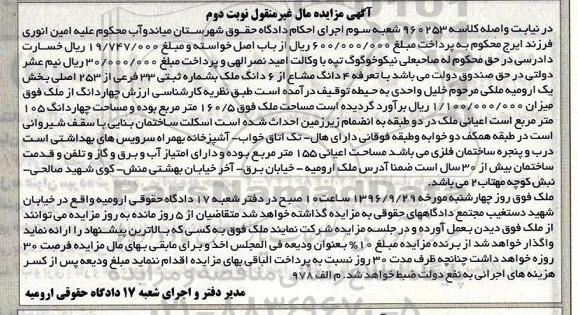 آگهی مزایده مال غیرمنقول نوبت دوم
در نیابت واصله کلاسه ۹۶۰۲۵۳ شعبه سوم اجرای احکام دادگاه حقوق شهرستان میاندوآب محکوم علیه امین انوری
فرزند ایرج محکوم به پرداخت مبلغ ۶۰۰/۰۰۰/۰۰۰ ریال از باب اصل خواسته و مبلغ ۱۹/۷۴۷/۰۰۰ ریال خسارت
دادرسی در حق محکوم له صاحبعلی نیکوخوگوگ تپه با وکالت امید نصرالهی و پرداخت مبلغ ۳۰/۰۰۰/۰۰۰ ریال نیم عشر
دولتی در حق صندوق دولت می باشد با تعرفه ۴ دانگ مشاع از ۶ دانگ ملک بشماره ثبتی ۳۳ فرعی از ۲۵۳ اصلی بخش
یک ارومیه ملکی مرحوم خلیل واحدی به حیطه توقیف درآمده است طبق نظریه کارشناسی ارزش چهاردانگ از ملک فوق
میزان ۱/۱۰۰/۰۰۰/۰۰۰ ریال برآورد گردیده است مساحت ملک فوق ۱۶۰/۵ متر مربع بوده و مساحت چهاردانگ ۱۰۵
متر مربع است اعیانی ملک در دو طبقه به انضمام زیرزمین احداث شده است اسکلت ساختمان بنایی با سقف شیروانی
است در طبقه همکف دو خوابه وطبقه فوقانی دارای هال- تک اتاق خواب- آشپزخانه بهمراه سرویس های بهداشتی است
درب و پنجره ساختمان فلزی می باشد مساحت اعیانی ۱۵۵ متر مربع بوده و دارای امتیاز آب و برق و گاز و تلفن و قدمت
ساختمان بیش از ۳۰ سال است ضمنا آدرس ملک ارومیه - خیابان برق- آخر خیابان بهشتی منش- کوی شهید صالحی-
نبش کوچه مهتاب۲ می باشد.
ملک فوق روز چهارشنبه مورخه ۱۳۹۶/۹/۲۹ ساعت۱۰ صبح در دفتر شعبه ۱۷ دادگاه حقوقی ارومیه واقع در خیابان
شهید دستغیب مجتمع دادگاههای حقوقی به مزایده گذاشته خواهد شد متقاضیان از ۵ روز مانده به روز مزایده می توانند
از ملک فوق دیدن بعمل آورده و در جلسه مزایده شرکت نمایند ملک فوق به کسی که بالاترین پیشنهاد را ارائه نماید
واگذار خواهد شد از برنده مزایده مبلغ ۱۰% بعنوان ودیعه فی المجلس اخذ و برای مابقی بهای مال مزایده فرصت ۳۰
روزه خواهد داشت چنانچه ظرف مدت ۳۰ روز نسبت به پرداخت الباقی بهای مزایده اقدام ننماید مبلغ ودیعه پس از کسر
هزینه های اجرائی به نفع دولت ضبط خواهد شد. م الف ۹۷۸
مدیر دفتر و اجرای شعبه ۱۷ دادگاه حقوقی ارومیه